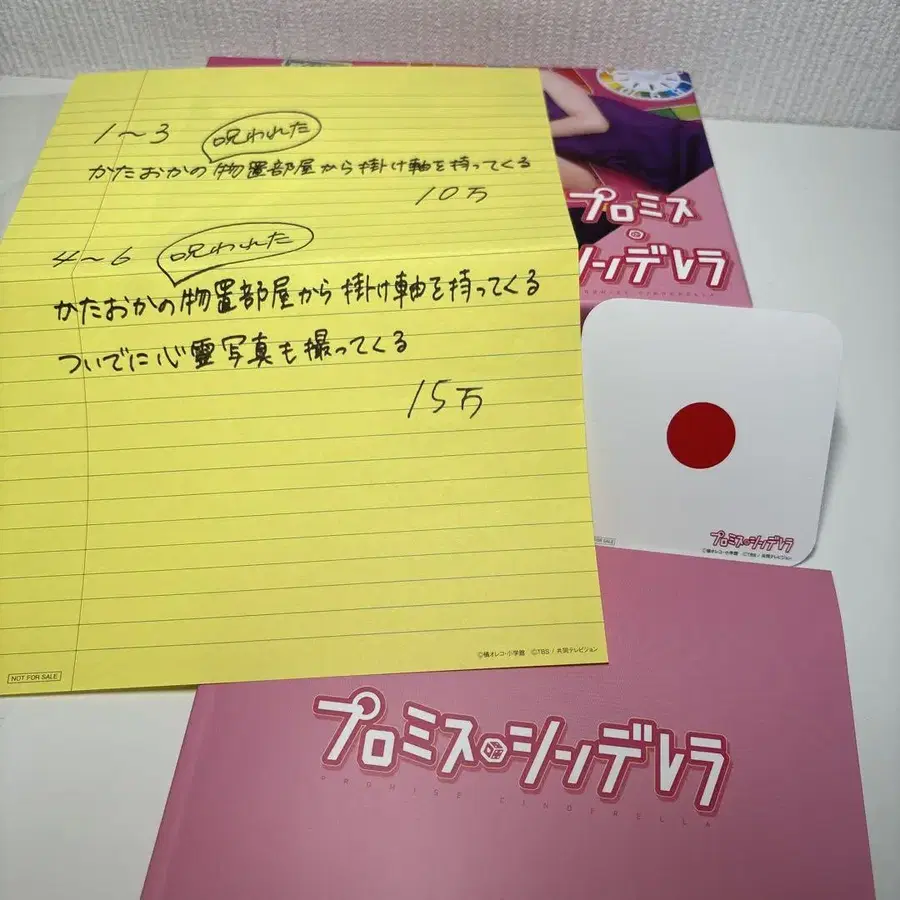 1〜3 呪われた
かたおかの物置部屋から掛け軸を持ってくる
10万
4〜6 呪われた
かたおかの物置部屋から掛け軸を持ってくる
ついでに心霊写真も撮ってくる
15万
NOT FOR SALE
©橘オレコ・小学館 ©TBS / 共同テレビジョン
プロミス
シンデレラ
プロミス・シンデレラ
©橘オレコ・小学館 ©TBS / 共同テレビジョン
プロミス・シンデレラ
PROMISE CINDERELLA